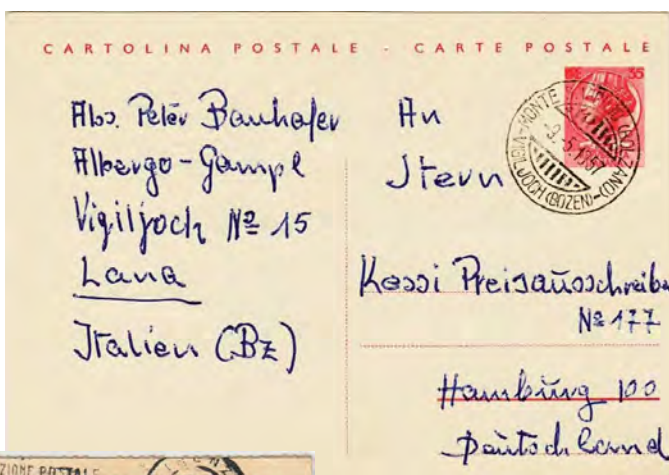 CARTOLINA POSTALE - CARTE POSTALE
35
Abs. Peter Bauhofer
Albergo-Gampl
Vigiljoch № 15
Lana
Italien (Bz)
An
Stern
Kossi Preisausschreiben
№ 177
Hamburg 100
Deutschland
VIGILJOCH (BOZEN)
ZIONE POSTALE